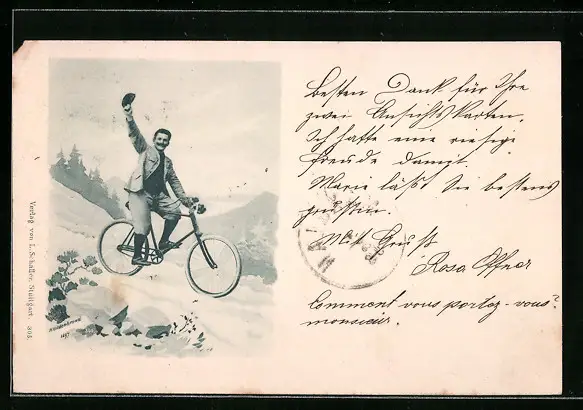 Besten Dank für Ihre
zwei Ansichtskarten.
Ich hatte eine riesige
Freude damit.
Marie läßt Sie bestens
grüssen.
Mit Gruß
Rosa
Comment vous portez-vous?
monsieur.
Verlag von L. Schaller, Stuttgart. 305.
1897